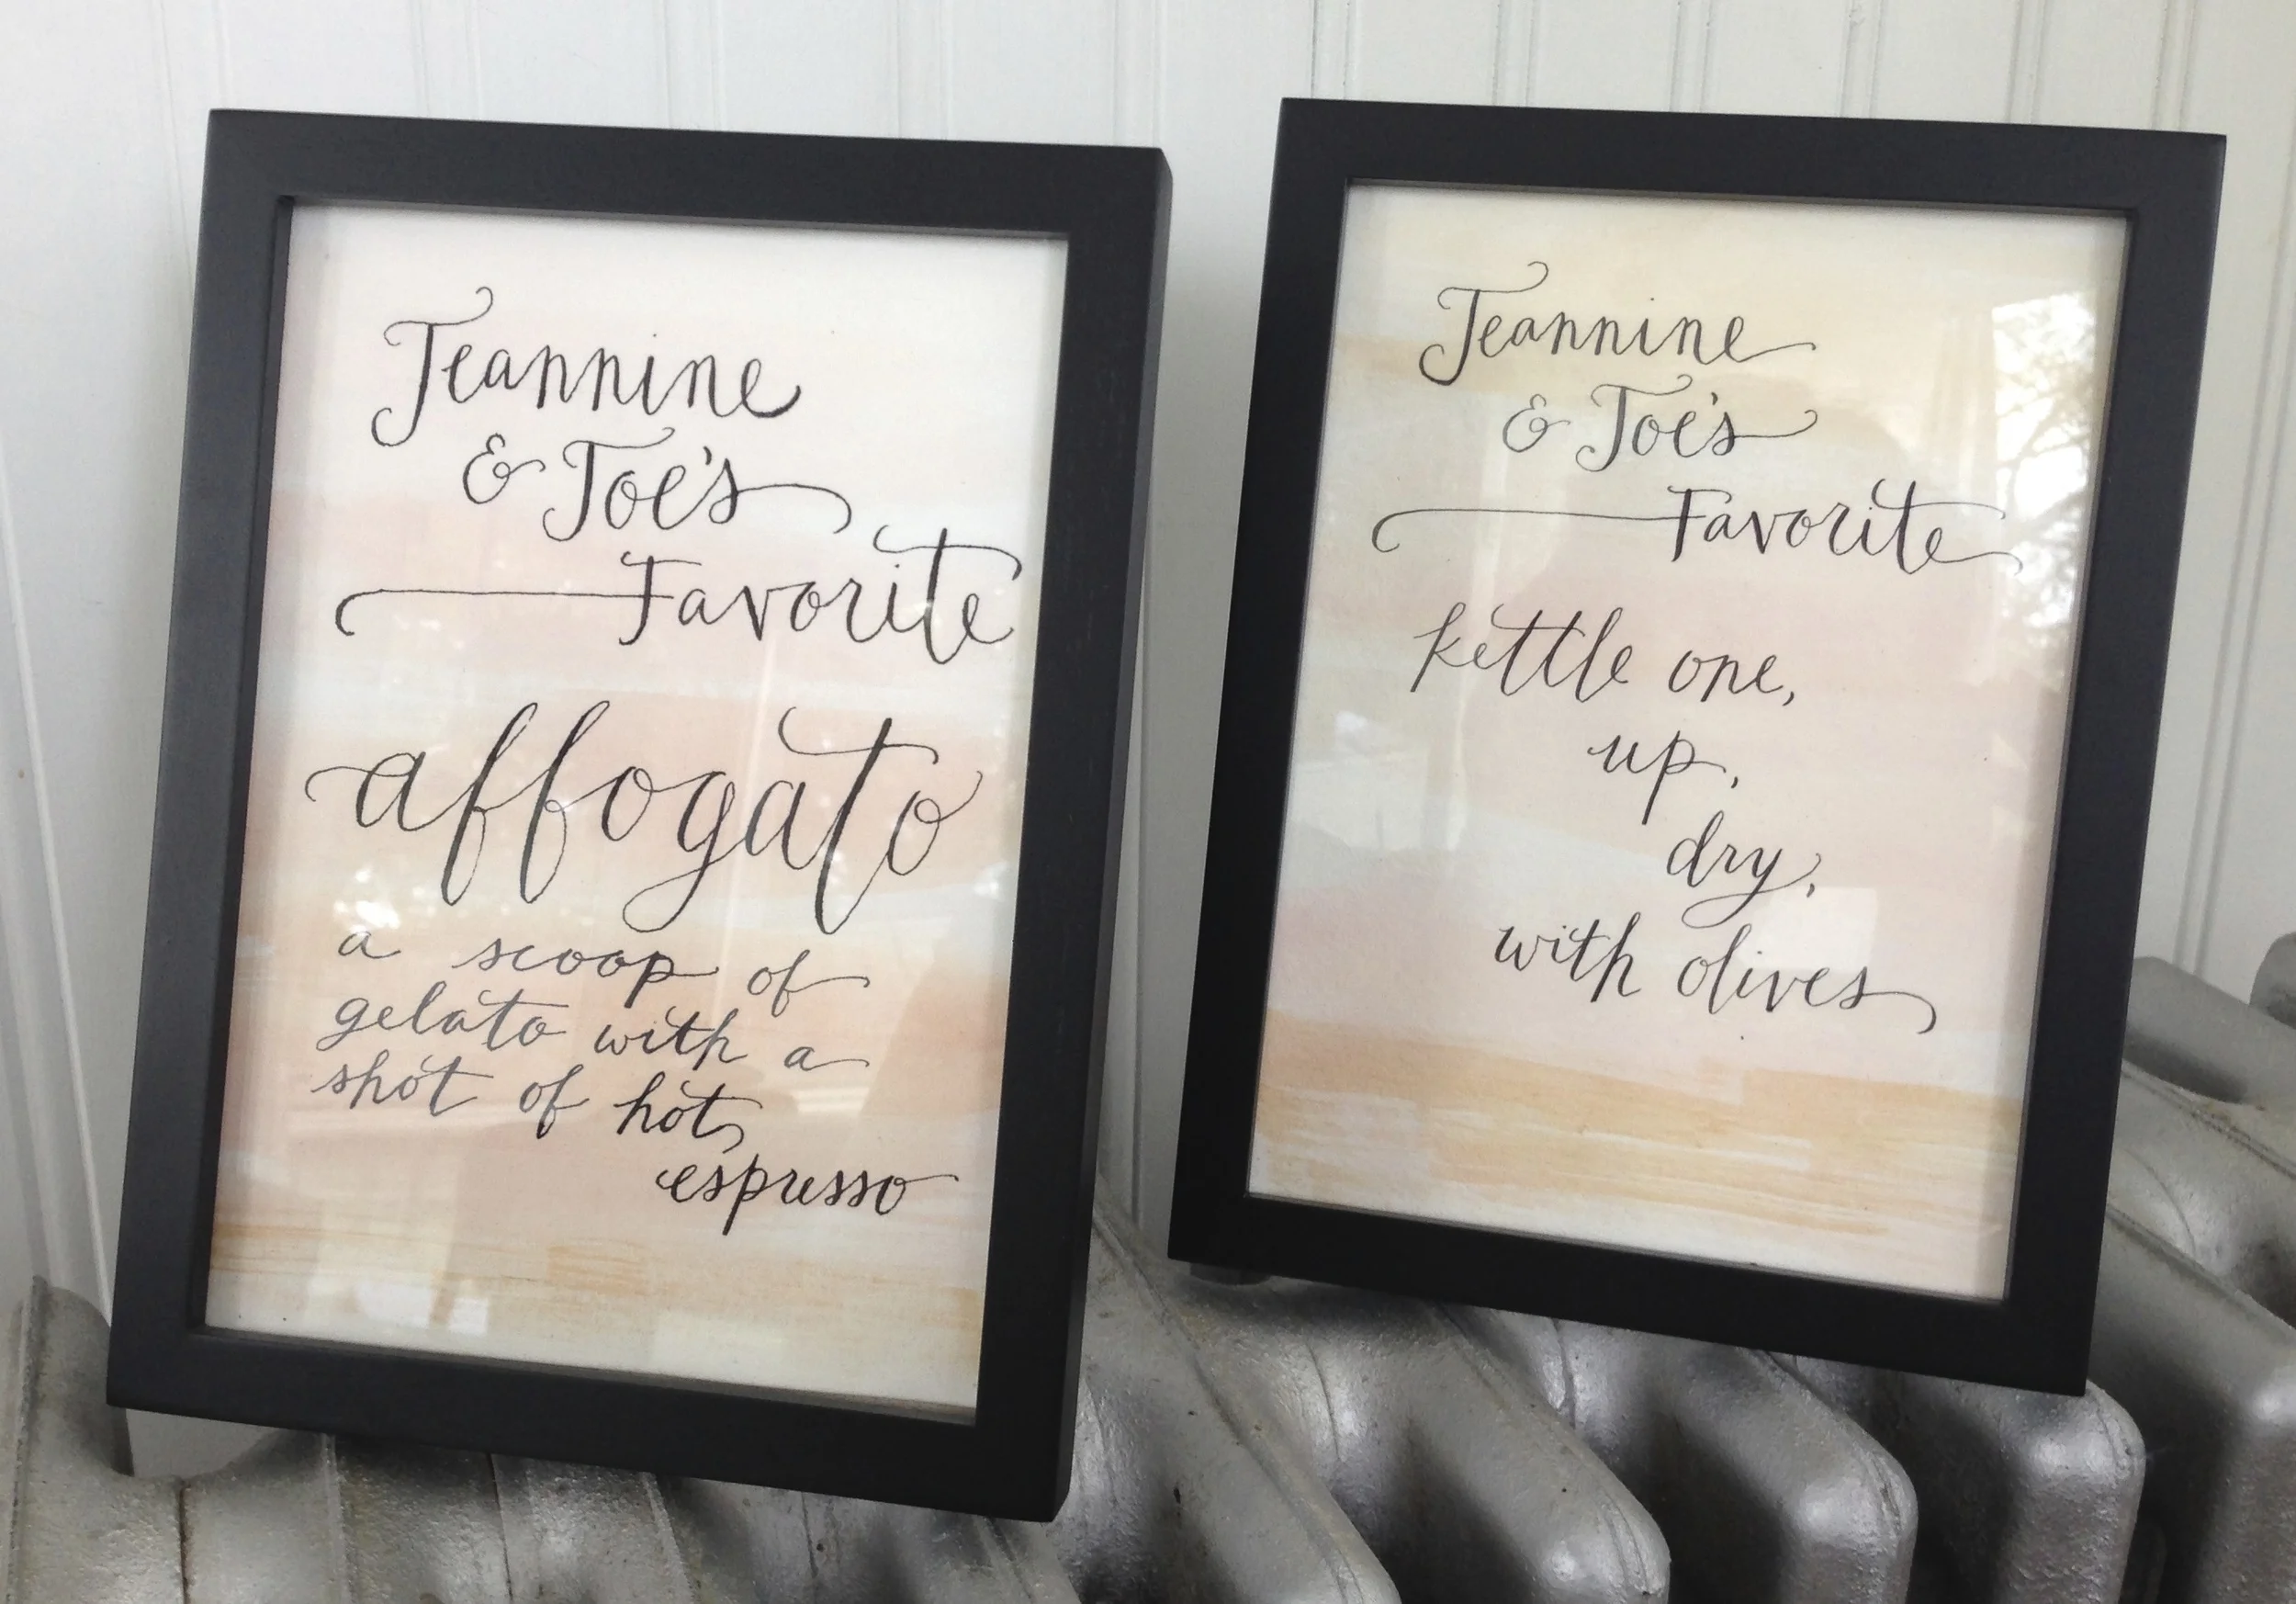 Jeannine
& Joe's
Favorite
affogato
a scoop of
gelato with a
shot of hot
espresso
Jeannine
& Joe's
Favorite
kettle one,
up,
dry,
with olives